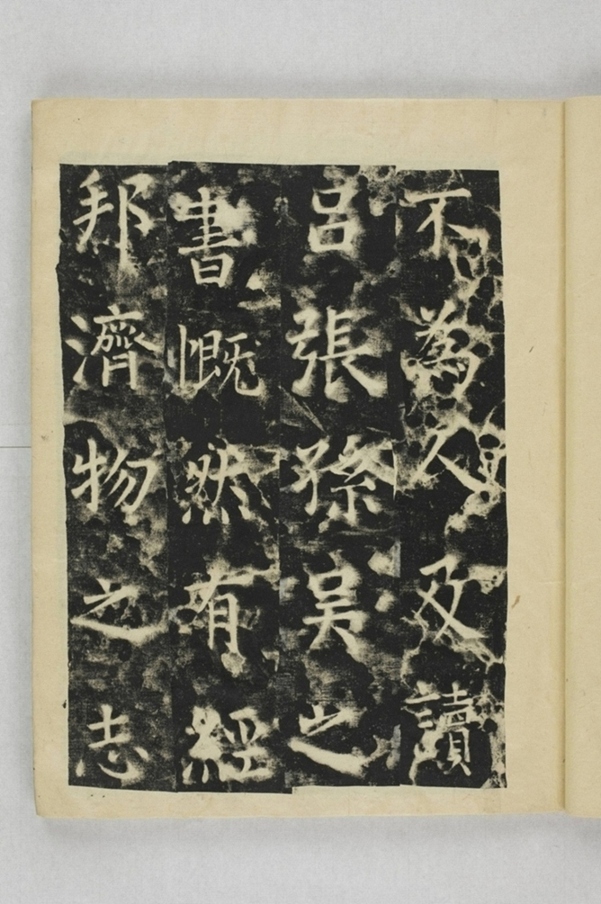 不為人及讀
呂張孫吳之
書慨然有經
邦濟物之志